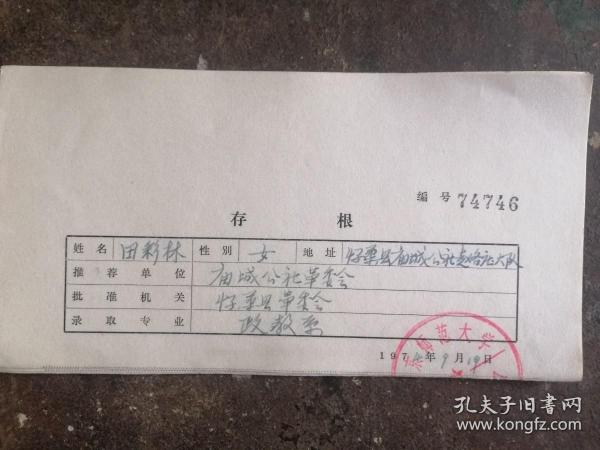 编号 74746
存根
姓名 田彩林 性别 女 地址 怀柔县庙城公社赵各庄大队
推荐单位 庙城公社革委会
批准机关 怀柔县革委会
录取专业 政教系
1974年9月19日
京师范大学
孔夫子旧书网
www.kongfz.com